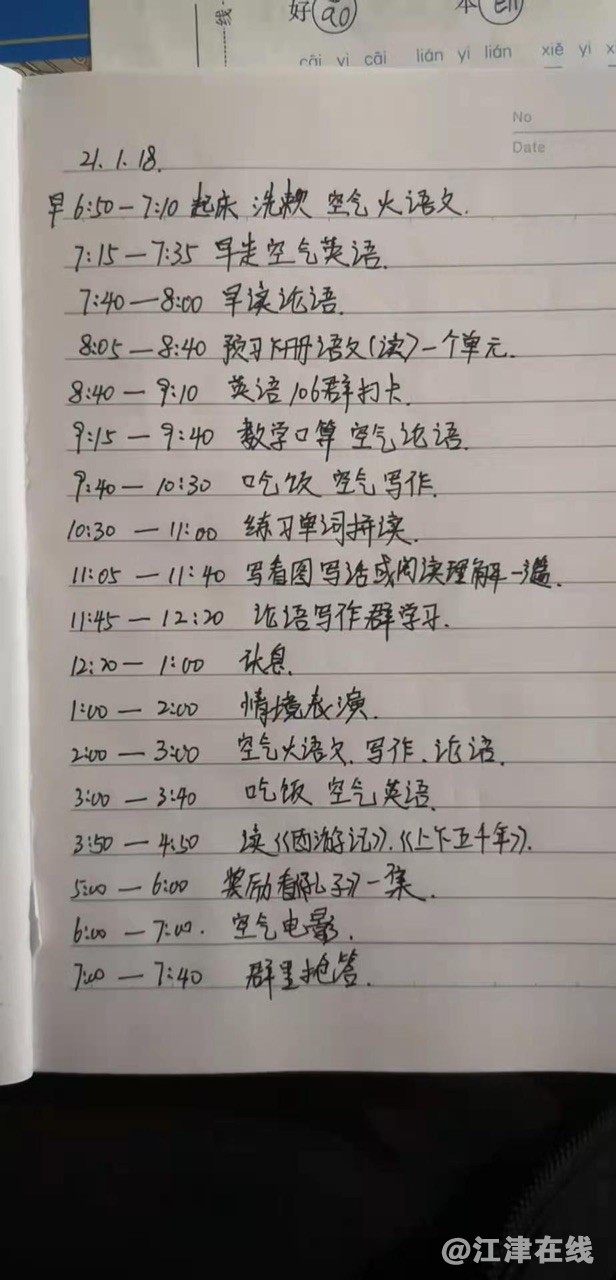 线
好 ao
本
cāi yi cāi lián yi lián xiě yi
No
Date
21.1.18.
早6:50—7:10 起床 洗漱 空气大语文.
7:15—7:35 早走空气英语.
7:40—8:00 早读论语.
8:05—8:40 预习下册语文(读)一个单元.
8:40—9:10 英语106群打卡.
9:15—9:40 数学口算 空气论语.
9:40—10:30 吃饭 空气写作.
10:30—11:00 练习单词拼读.
11:05—11:40 写看图写话或阅读理解一篇.
11:45—12:20 论语写作群学习.
12:20—1:00 休息.
1:00—2:00 情境表演.
2:00—3:00 空气大语文、写作、论语.
3:00—3:40 吃饭 空气英语.
3:50—4:50 读《西游记》.《上下五千年》.
5:00—6:00 奖励看《孔子》一集.
6:00—7:00. 空气电影.
7:00—7:40 群里抢答.
@江津在线